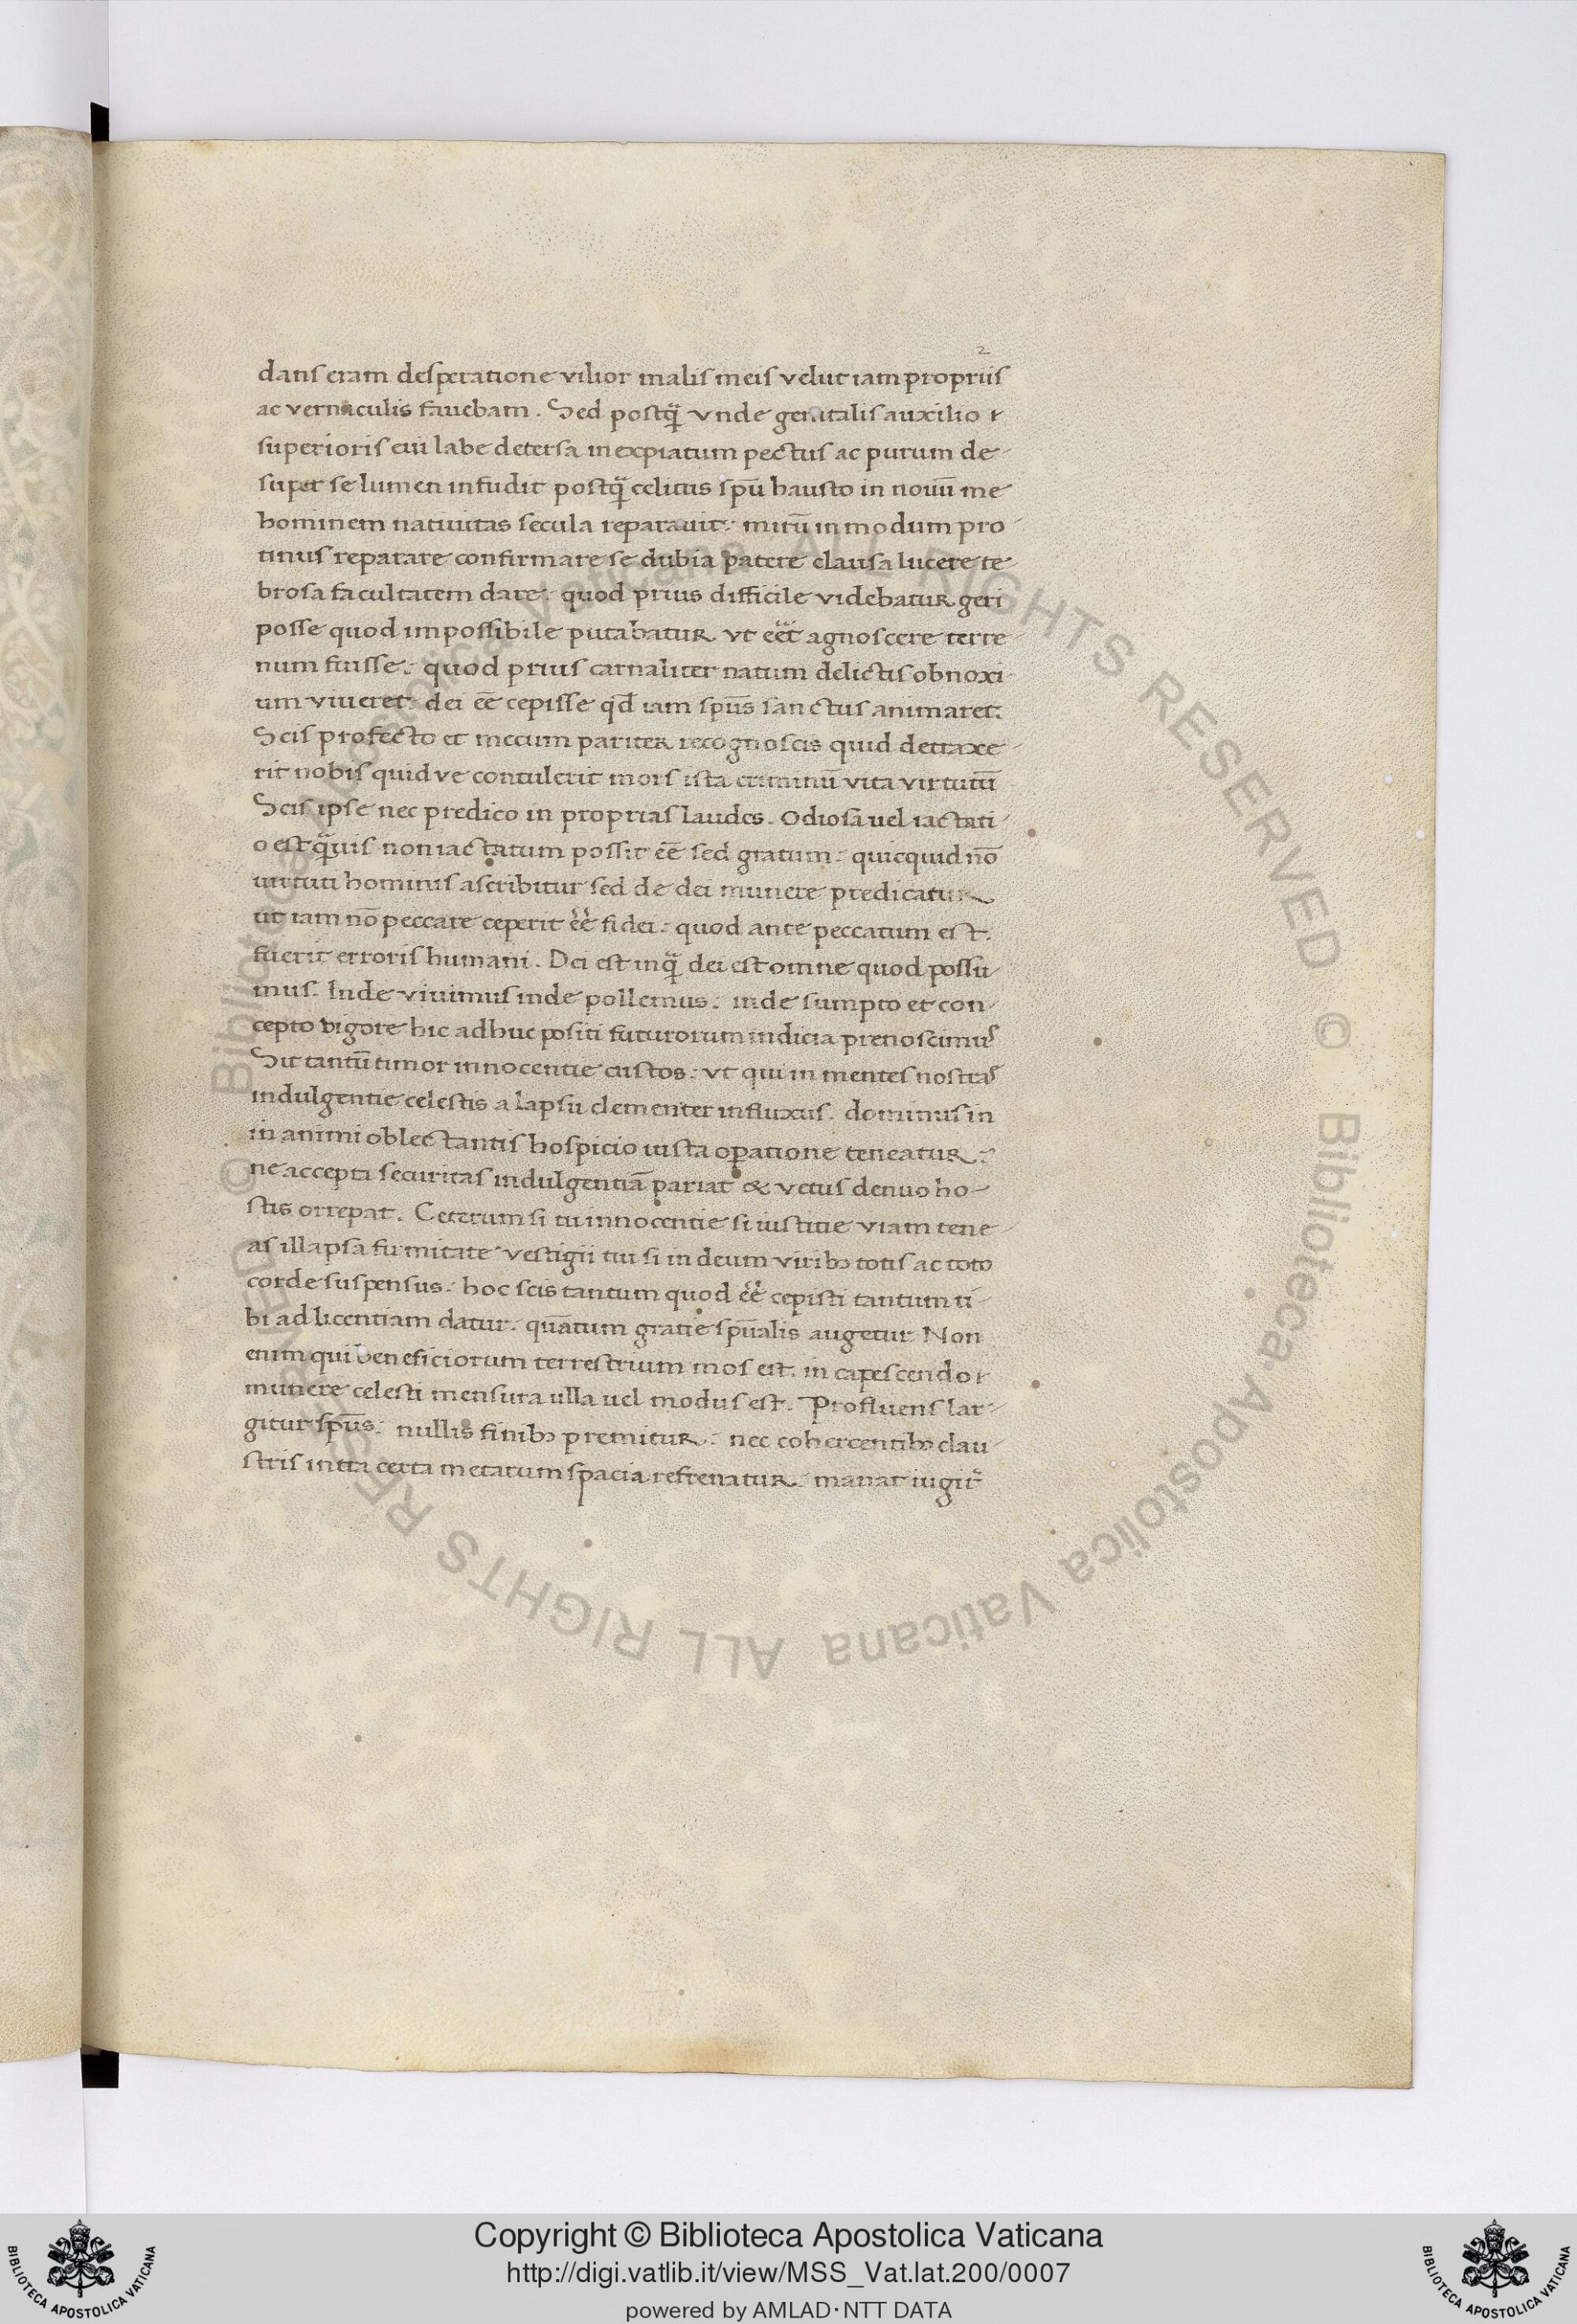 2
dans eram desperatione vilior malis meis velut iam propriis
ac vernaculis fauebam. Sed postq̃ vnde genitalis auxilio
superioris eui labe detersa in expiatum pectus ac purum de
super se lumen infudit postq̃ celitus spū hausto in nouū me
hominem natiuitas secula reparauit: mirū in modum pro
tinus reparare confirmare se dubia patere clausa lucere te
brosa facultatem dare: quod prius difficile videbatur geri
posse quod impossibile putabatur vt eēt agnoscere terre
num fuisse: quod prius carnaliter natum delictis obnoxi
um viueret: dei eē cepisse qđ iam spūs sanctus animaret.
Scis profecto et mecum pariter recognoscis quid detraxe
rit nobis quid ve contulerit mors ista criminū vita virtutū
Scis ipse nec predico in proprias laudes. Odiosa uel iactati
o est q̃uis non iactatum possit eē sed gratum: quicquid nō
uirtuti hominis ascribitur sed de dei munere predicatur
ut iam nō peccare ceperit eē fidei: quod ante peccatum est.
fuerit erroris humani. Dei est inq̃ dei est omne quod possu
mus. Inde viuimus inde pollemus: inde sumpto et con
cepto vigore hic adhuc positi futurorum indicia prenoscimus
Sit tantū timor innocentie custos: vt qui in mentes nostras
indulgentie celestis a lapsu clementer influxus. dominus in
in animi oblectantis hospicio iusta oꝑatione teneatur:
ne accepta securitas indulgentiā pariat & vetus denuo ho
stis orrepat. Ceterum si tu innocentie si iustitie viam tene
as illapsa firmitate vestigii tui si in deum viribꝫ totis ac toto
corde suspensus: hoc scis tantum quod eē cepisti tantum ti
bi ad licentiam datur: quātum gratie spūalis augetur Non
enim qui beneficiorum terrestrium mos est. in capescendo
munere celesti mensura ulla uel modus est. Profluens lar
gitur spūs: nullis finibꝫ premitur: nec cohercentibꝫ clau
stris intra certa metarum spacia refrenatur: manat iugit̃
© Biblioteca Apostolica Vaticana ALL RIGHTS RESERVED © Biblioteca Apostolica Vaticana ALL RIGHTS RESERVED
Copyright © Biblioteca Apostolica Vaticana
http://digi.vatlib.it/view/MSS_Vat.lat.200/0007
powered by AMLAD·NTT DATA
BIBLIOTECA APOSTOLICA VATICANA
BIBLIOTECA APOSTOLICA VATICANA